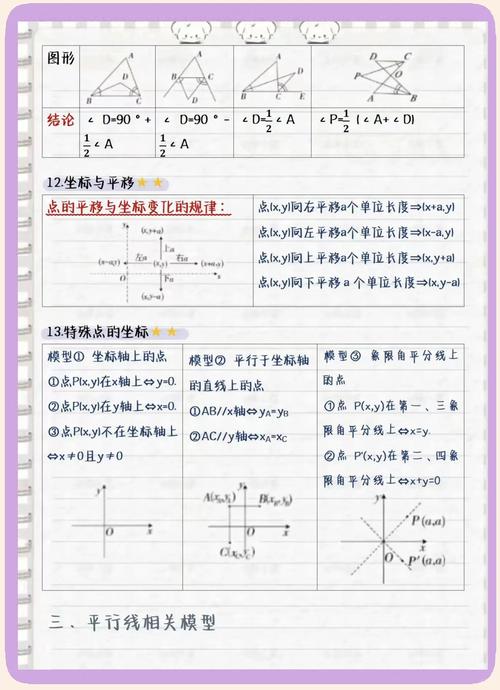 图形
A
D
B C
A
B C
D
A
D
B C E
D C
P O
A B
结论
∠ D=90 ° + 1/2 ∠ A
∠ D=90 ° - 1/2 ∠ A
∠ D=1/2 ∠ A
∠ P=1/2 (∠ A+ ∠ D)
12.坐标与平移
点的平移与坐标变化的规律:
y
(x,y+a)
上a
(x-a,y) 左a (x,y) 右a (x+a,y)
下a
O x
(x,y-a)
点(x,y)向右平移a个单位长度⇒(x+a,y)
点(x,y)向左平移a个单位长度⇒(x-a,y)
点(x,y)向上平移a个单位长度⇒(x,y+a)
点(x,y)向下平移 a 个单位长度⇒(x,y-a)
13.特殊点的坐标
模型① 坐标轴上的点
①点P(x,y)在x轴上⇔y=0.
②点P(x,y)在y轴上⇔x=0.
③点P(x,y)不在坐标轴上
⇔x≠0且y≠0
y
O x
模型② 平行于坐标轴
的直线上的点
①AB//x轴⇔yA=yB
②AC//y轴⇔xA=xC
y
A(xA,yA) B(xB,yB)
O x
C(xC,yC)
模型③ 象限角平分线上
的点
①点 P(x,y)在第一、三象
限角平分线上⇔x=y.
②点 P'(x,y)在第二、四象
限角平分线上⇔x+y=0
y
P(a,a)
x
O P'(a,a)
三、平行线相关模型